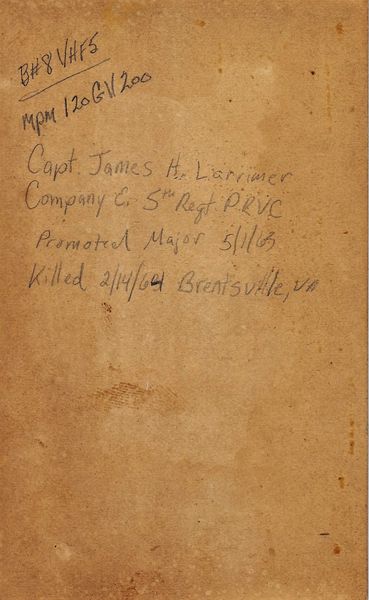 BH8VHF5
MPM120GV200
Capt. James H. Larrimer
Company E. 5th Regt. PRVC
Promoted Major 5/1/63
Killed 2/14/64 Brentsville, VA